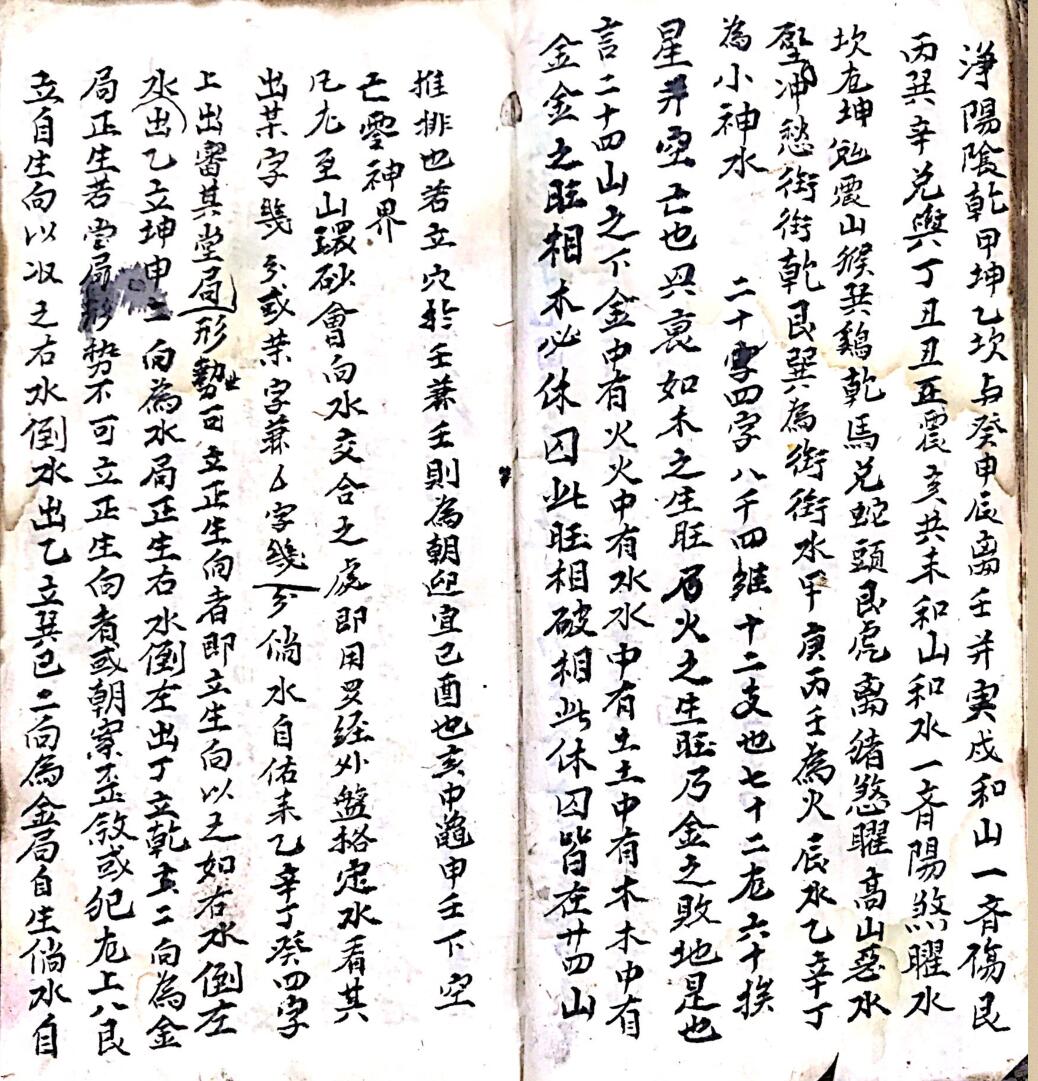 淨陽隂乾甲坤乙坎与癸申辰离壬并寅戌和山一斉傷艮
丙巽辛兌與丁丑丑亚震亥共未和山和水一斉陽煞曜水
坎龙坤兔震山猴巽鷄乾馬兌蛇頭艮虎离猪慾曜高山惡水
冲愁街街乾艮巽為街街水甲庚丙壬為火辰水乙辛丁
為小神水　二十四字八千四維十二支也七十二龙六十挨
星并空亡也興衰如木之生旺乃火之生旺乃金之敗地是也
言二十四山之下金中有火火中有水水中有土土中有木木中有
金金之旺相木必休囚此旺相破相此休囚皆在廿四山
推排也若立穴於壬兼壬則為朝迎宜己酉也亥中龜申壬下空
亡零神界
凡龙至山環砂會向水交合之處即用罗経外盤格定水看其
出某字幾分或某字兼么字幾分倘水自佑耒乙辛丁癸四字
上出審其堂局形勢可立正生向者即立生向以之如右水倒左
水出乙立坤申二向為水局正生右水倒左出丁立乾亥二向為金
局正生若堂局形势不可立正生向者或朝案歪斜或犯龙上八艮
立自生向以収之右水倒水出乙立巽巳二向為金局自生倘水自